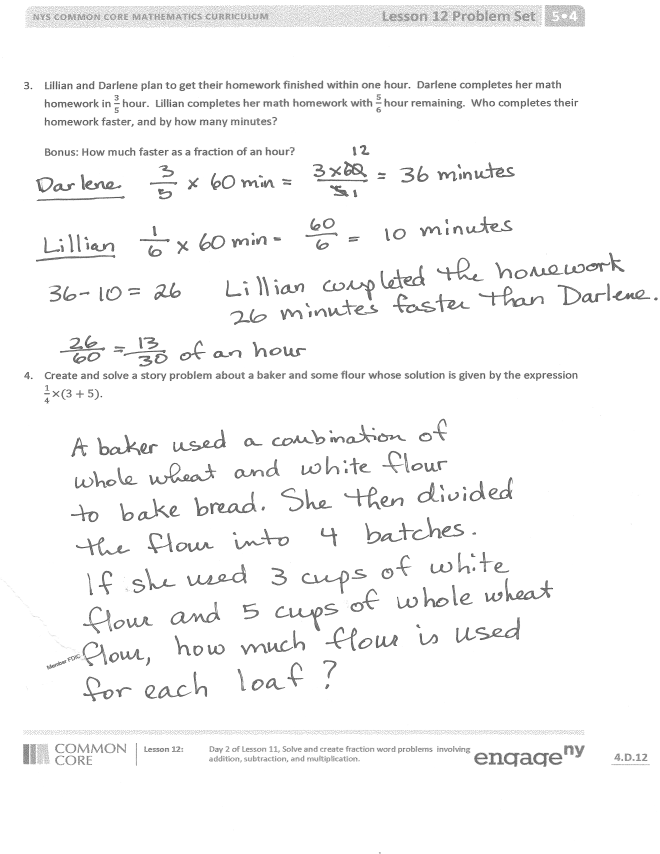 NYS COMMON CORE MATHEMATICS CURRICULUM Lesson 12 Problem Set 5•4
3. Lillian and Darlene plan to get their homework finished within one hour. Darlene completes her math
homework in 3/5 hour. Lillian completes her math homework with 5/6 hour remaining. Who completes their
homework faster, and by how many minutes?
Bonus: How much faster as a fraction of an hour?
12
Darlene 3/5 x 60 min = 3 x 60/5 1 = 36 minutes
Lillian 1/6 x 60 min = 60/6 = 10 minutes
36 - 10 = 26 Lillian completed the homework
26 minutes faster than Darlene.
26/60 = 13/30 of an hour
4. Create and solve a story problem about a baker and some flour whose solution is given by the expression
1/4 × (3 + 5).
A baker used a combination of
whole wheat and white flour
to bake bread. She then divided
the flour into 4 batches.
If she used 3 cups of white
flour and 5 cups of whole wheat
Member FDIC flour, how much flour is used
for each loaf?
COMMON CORE Lesson 12: Day 2 of Lesson 11, Solve and create fraction word problems involving
addition, subtraction, and multiplication.
engage ny 4.D.12